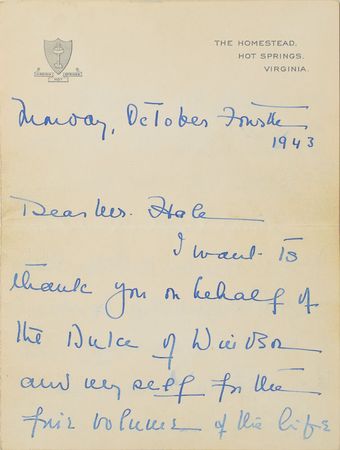 THE HOMESTEAD,
HOT SPRINGS,
VIRGINIA.
VIRGINIA SPRINGS
HOT
Monday, October Fourth
1943
Dear Mr. Hale
I want to
thank you on behalf of
the Duke of Windsor
and my self for the
five volumes of the life